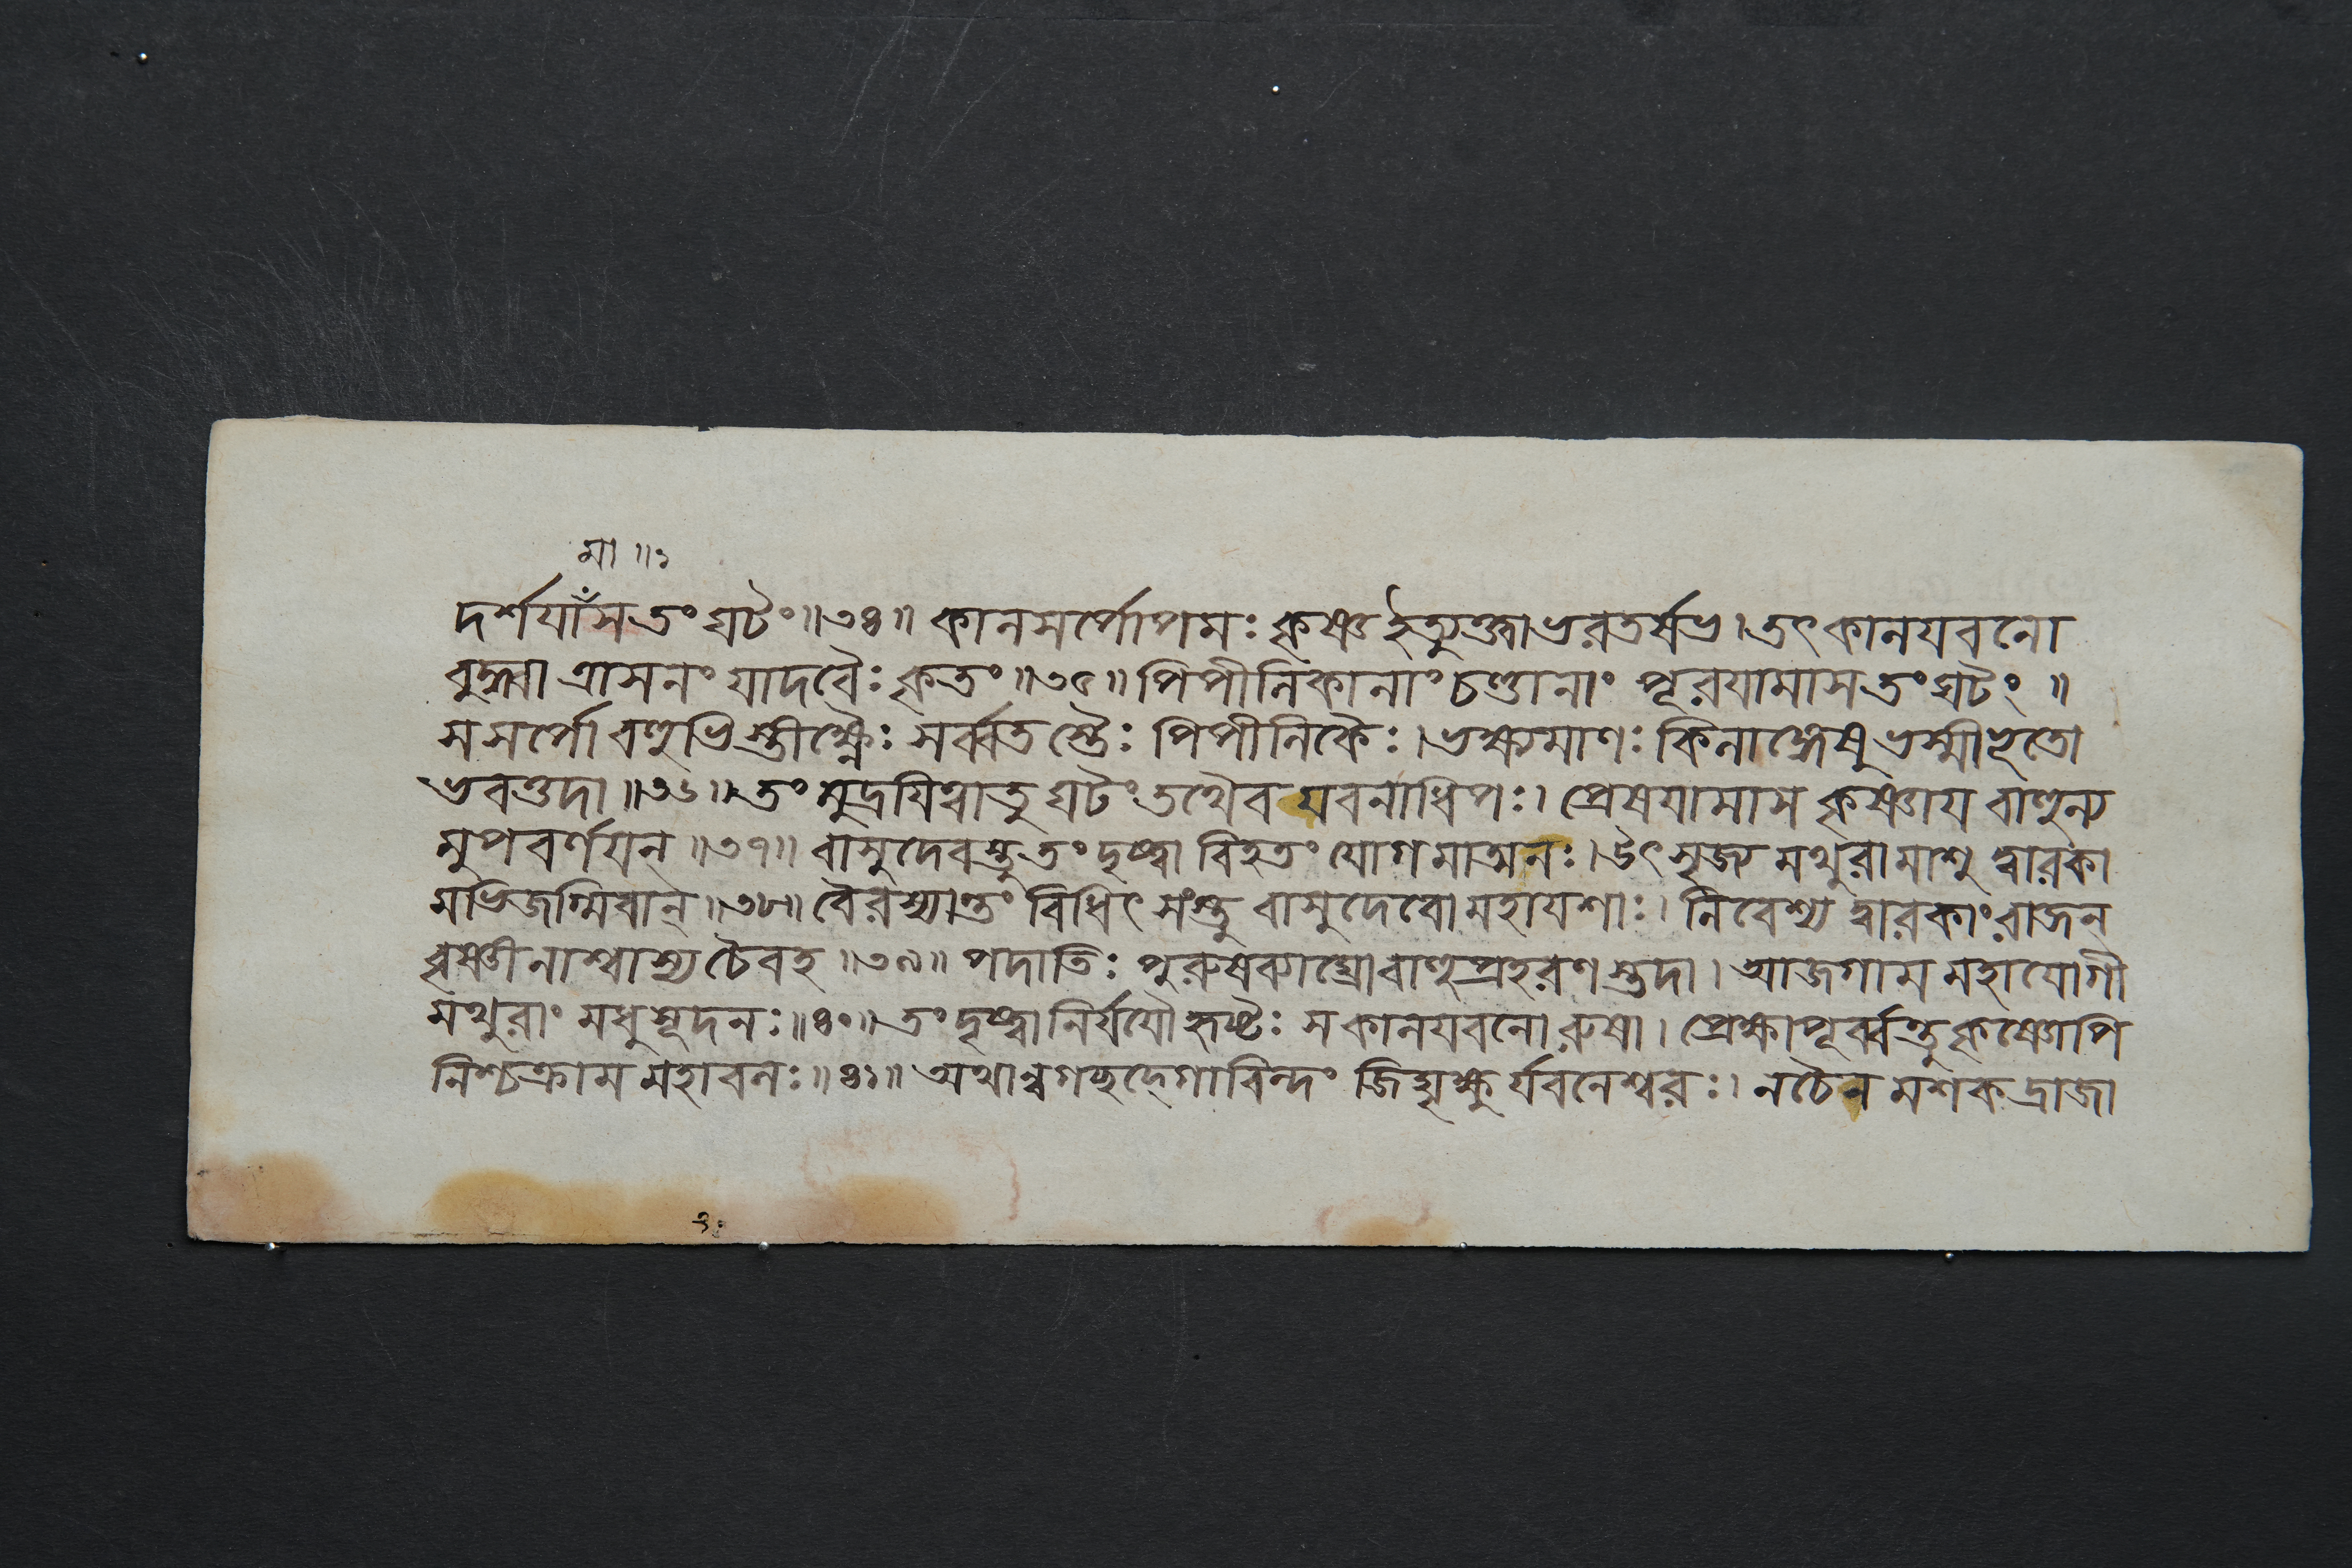 মা ॥ঃ
দর্শযাঁসতং ঘটং॥৩৪॥ কানসর্পোপমঃ কৃষ্ণ ইত্যুক্ত্বাভরতর্ষভ।তৎকানযবনো
বুদ্ধ্বা ত্রাসনং যাদবৈঃ কৃতং॥৩৫॥ পিপীনিকানাং চণ্ডানাং পূরযামাস তং ঘটং ॥
সসর্পো বণুভিস্তীক্ষ্ণৈঃ সর্ব্বতস্তৈঃ পিপীনিকৈঃ।ভক্ষ্যমাণঃ কিনাঙ্গেষু ভস্মীহূতো
ভবত্তদা॥৩৬॥ তং মুদ্রযিত্বাতু ঘটং তথৈব যবনাধিপঃ। প্রেষযামাস কৃষ্ণায বাণুন্য
মুপবর্ণযন্॥৩৭॥ বাসুদেবস্তুতং দৃষ্ট্বা বিহতং যোগমাত্মনঃ।উৎসৃজ্য মথুরামাশু দ্বারকা
মভিজগ্মিবান্॥৩৮॥ বৈরস্যান্তং বিধিৎসংস্তু বাসুদেবো মহাযশাঃ। নিবেশ্য দ্বারকাং রাজন্
বৃষ্ণীনাশ্বাশ্য চৈবহ॥৩৯॥ পদাতিঃ পুরুষব্যাঘ্রোবাণুপ্রহরণস্তদা। আজগাম মহাযোগী
মথুরাং মধুসূদনঃ॥৪০॥ তং দৃষ্ট্বানির্যযৌ হৃষ্টঃ সকানযবনো রুষা। প্রেক্ষাপূর্ব্বন্তু কৃষ্ণোপি
নিশ্চক্রাম মহাবনঃ॥৪১॥ অথান্বগচ্ছদ্গোবিন্দং জিঘৃক্ষুর্যবনেশ্বরঃ। নচৈন মশকদ্রাজা